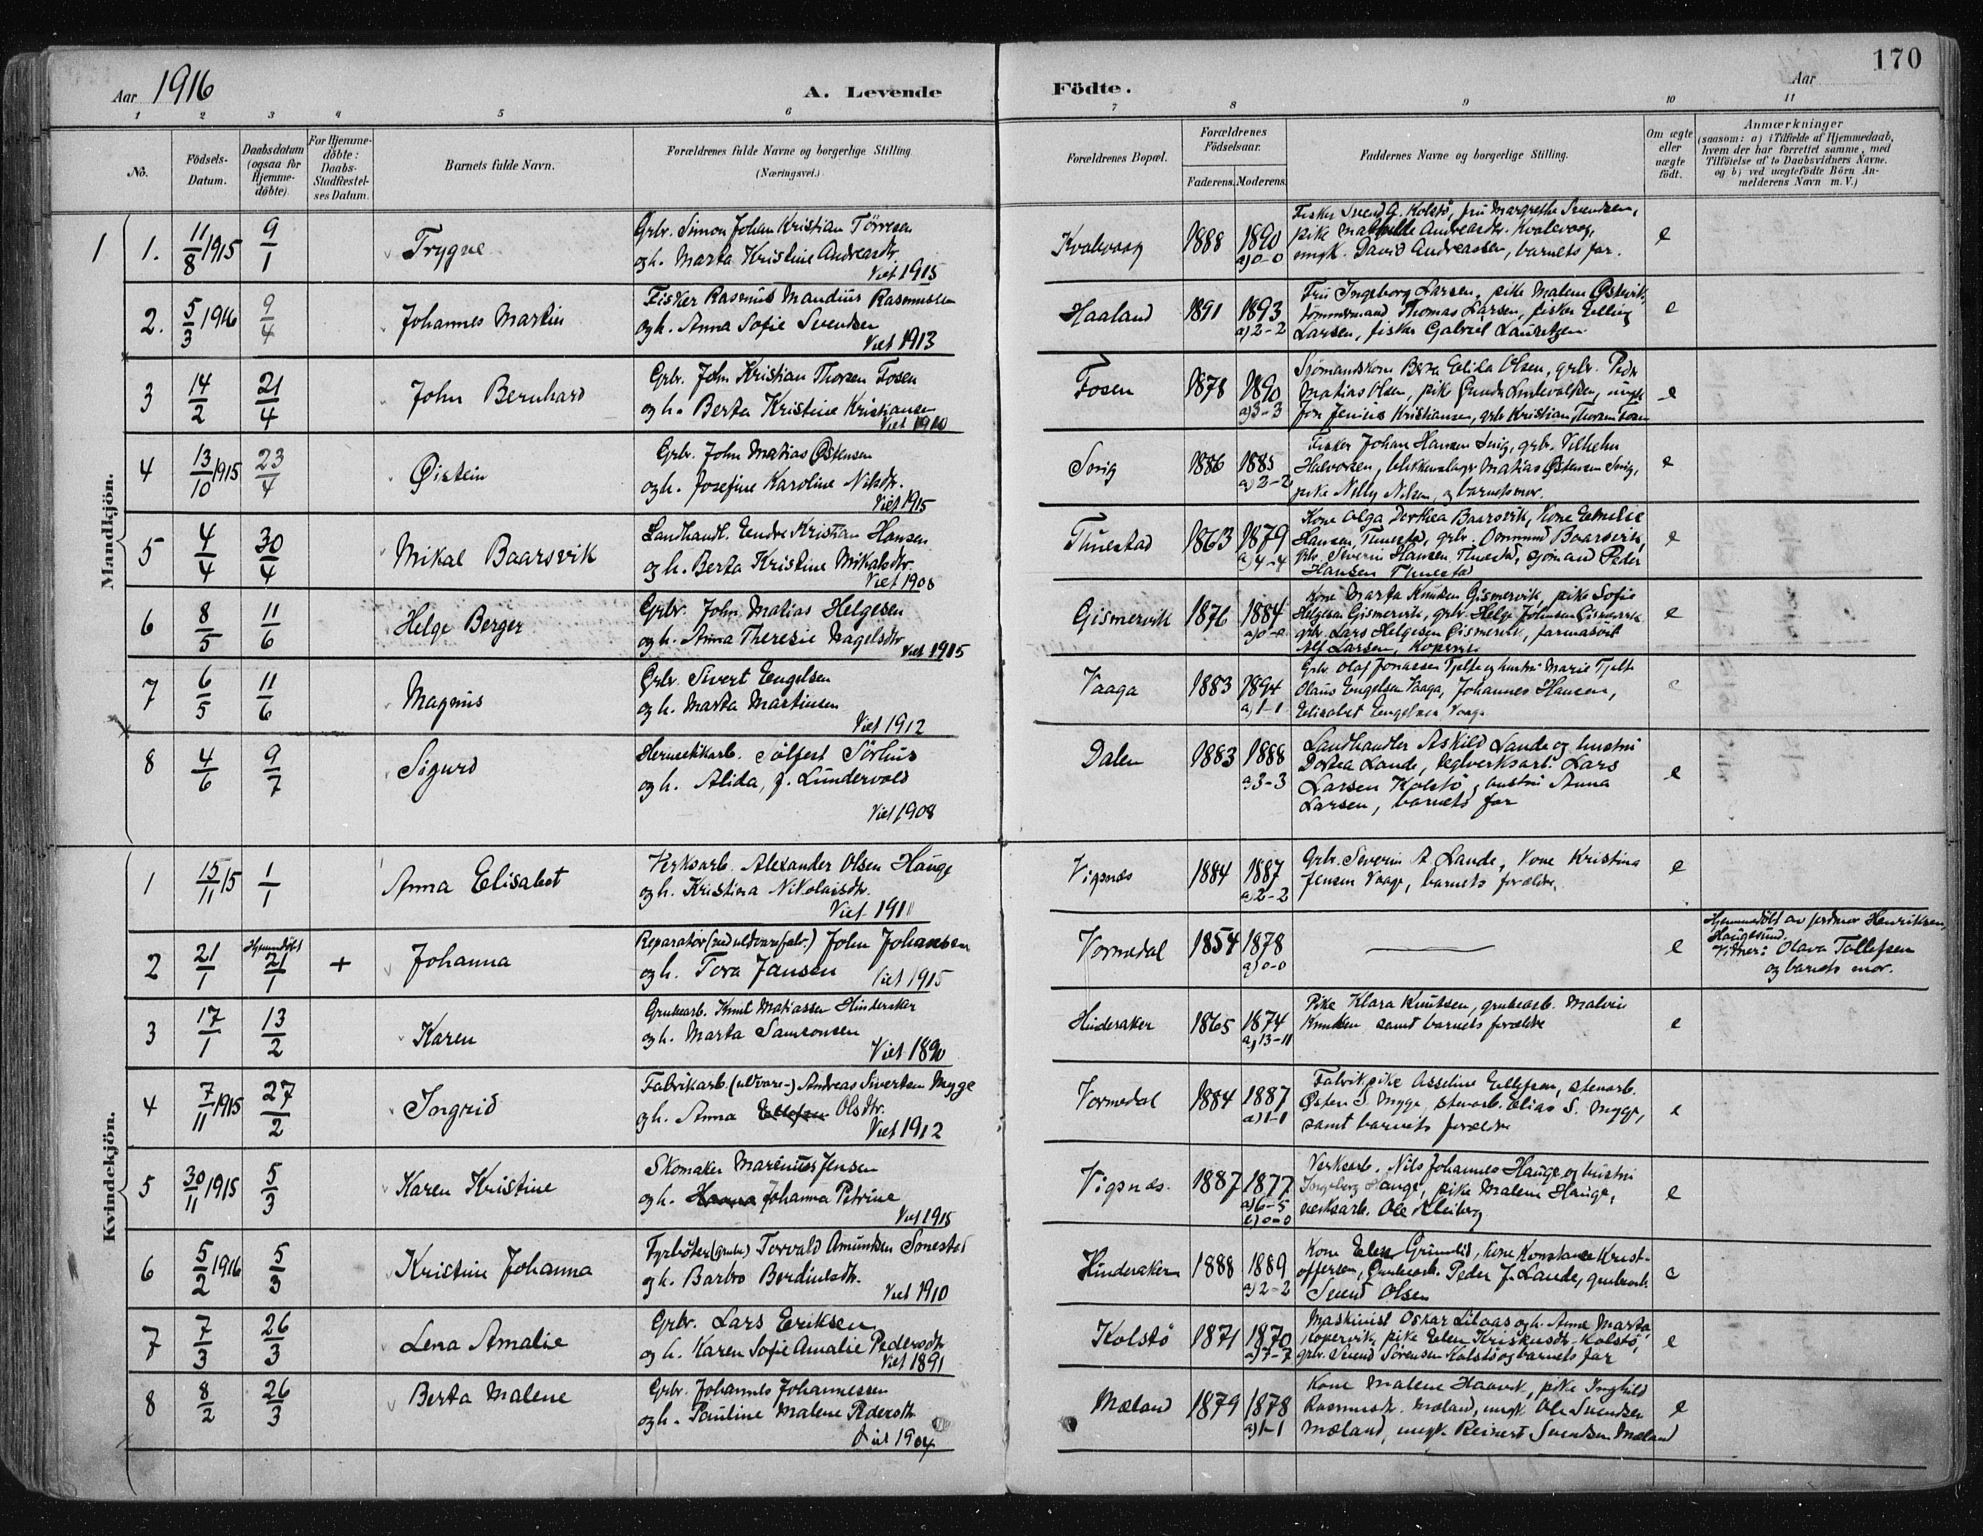 170
Aar 1916
A. Levende
Födte.
Aar
1 2 3 4 5 6 7 8 9 10 11
No.
Födsels-Datum.
Daabsdatum (ogsaa for Hjemme-døbte).
For Hjemme-døbte: Daabs-Stadfæstel-ses Datum.
Barnets fulde Navn.
Forældrenes fulde Navne og borgerlige Stilling (Næringsvei.)
Forældrenes Bopæl.
Forældrenes Födselsaar.
Faderens. Moderens.
Faddernes Navne og borgerlige Stilling.
Om ægte eller uægte födt.
Anmærkninger
(saasom: a) i Tilfælde af Hjemmedaab,
hvem der har forrettet samme, med
Tilföielse af to Daabsvidners Navne.
og b) ved uægtefödte Börn An-
melderens Navn m.V.)
Mandkjön.
1 1. 11/8 1915 9/1 Trygve
Grbr. Simon Johan Kristian Törresen
og h. Marta Kristine Andreasdtr.
Viet 1915
Kvalevaag 1888 1890 a) 0-0
Fisker Svend G. Kolstö, fru Margrethe Svendsen,
pike Mathilde Andreasdtr. Kvalevaag,
ungk. David Andreassen, barnets far.
e
2. 5/3 1916 9/4 Johannes Martin
Fisker Rasmus Mandius Rasmussen
og h. Anna Sofie Svendsen
Viet 1913
Haaland 1891 1893 a) 2-2
Fru Ingeborg Larsen, pike Malene Østevik,
tömmermand Thomas Larsen, fisker Elling
Larsen, fisker Gabriel Lauritzen
e
3 14/2 21/4 John Bernhard
Grbr. John Kristian Thorsen Fosen
og h. Berta Kristine Kristiansen
Viet 1910
Fosen 1878 1890 a) 3-3
Sjömandskone Berta Elida Olsen, grbr. Peder
Matias Olsen, pike Gunda Lindevolden, ungk.
Jon Jenius Kristiansen, grbr. Kristian Thorsen Fosen
e
4 13/10 1915 23/4 Øistein
Grbr. John Matias Østensen
og h. Josefine Karoline Nilsdtr.
Viet 1915
Snig 1886 1885 a) 2-2
Fisker Johan Hansen Snig, grbr. Vilhelm
Halvorsen, blikkenslager Matias Østensen Snig,
pike Nelly Nilsen, og barnets mor.
e
5 4/4 30/4 Mikal Baarsvik
Landhandl. Endre Kristian Hansen
og h. Berta Kristine Mikalsdtr.
Viet 1908
Thuestad 1863 1879 a) 4-4
Kone Olga Dorthea Baarsvik, kone Emelie
Hansen, Thuestad, grbr. Osmund Baarsvik,
grbr. Severin Hansen Thuestad, sjömand Peder
Hansen Thuestad
e
6 8/5 11/6 Helge Berger
Grbr. John Matias Helgesen
og h. Anna Theresie Magelsdtr.
Viet 1915
Gismervik 1876 1884 a) 0-0
Kone Marta Knutsen Gismervik, pike Sofie
Helgesen Gismervik, grbr. Helge Johnsen Gismervik
grbr. Lars Helgesen Gismervik, farmasöit
Alf Larsen, Kopervik
e
7 6/5 11/6 Magnus
Grbr. Sivert Engelsen
og h. Marta Martinsen
Viet 1912
Vaaga 1883 1894 a) 1-1
Grbr. Olaf Jonassen Tjelte og hustru Marie Tjelte
Olaus Engelsen Vaaga, Johannes Hansen,
Elisabet Engelsen Vaage
e
8 4/6 9/7 Sigurd
Hermetikkarb. Solfest Sörhus
og h. Alida, f. Lundevold
Viet 1908
Dalen 1883 1888 a) 3-3
Landhandler Askild Lande og hustru
Dortea Lande, teglverksarb. Lars
Larsen Kolstö, hustru Anna
Larsen, barnets far
e
Kvindekjön.
1 15/11 15 1/1 Anna Elisabet
Verksarb. Alexander Olsen Hauge
og h. Kristina Nikolaisdtr.
Viet 1911
Vigsnes 1884 1887 a) 2-2
Grbr. Severin A. Lande, kone Kristina
Jensen Vaage, barnets forældre.
e
2 21/1 Hjemmedöbt 21/1 + Johanna
Reparatör (ved uldvarefabr.) John Johansen
og h. Tora Jansen
Viet 1915
Vormedal 1854 1878 a) 0-0
e
Hjemmedöbt av jordmor Henriksen,
Haugesund.
Vidner: Olava Tollefsen
og barnets mor.
3 17/1 13/2 Karen
Grubearb. Knut Matiassen Hinderaker
og h. Marta Samsonsen
Viet 1890
Hinderaker 1865 1874 a) 13-11
Pike Klara Knutsen, grubearb. Malvin
Knutsen samt barnets forældre
e
4 7/11 1915 27/2 Ingrid
Fabrikarb. (uldvare-) Andreas Sivertsen Myge
og h. Anna Ellefsen Olsdtr.
Viet 1912
Vormedal 1884 1887 a) 1-1
Fabrikpike Asseline Ellefsen, stenarb.
Østen S. Myge, stenarb. Elias S. Myge,
samt barnets forældre
e
5 30/11 1915 5/3 Karen Kristine
Skomaker Marinus Jensen
og h. Hanna Johanna Petrine
Viet 1915
Vigsnes. 1887 1877 a) 6-5 b) 0-0
Verksarb. Nils Johannes Hauge og hustru
Ingeborg Hauge, pike Malene Hauge,
verksarb. Ole Kleiberg
e
6 5/2 1916 5/3 Kristine Johanna
Fyrböter (grube) Torvald Amundsen Sonestad
og h. Barbro Berdinesdtr.
Viet 1910
Hinderaker 1888 1889 a) 2-2
Kone Elen Grimlid, kone Konstance Krist-
offersen, Grubearb. Peder J. Lande, grubearb.
Svend Olsen
e
7 7/3 26/3 Lena Amalie
Grbr. Lars Eriksen
og h. Karen Sofie Amalie Pedersdtr.
Viet 1891
Kolstö 1871 1870 a) 7-7
Maskinist Oskar Liloas og h. Anne Marta,
Kopervik, pike Elen Kristensdtr. Kolstö,
grbr. Svend Sörensen Kolstö og barnets far
e
8 8/2 26/3 Berta Malene
Grbr. Johannes Johannessen
og h. Pauline Malene Pedersdtr.
Viet 1904
Mæland 1879 1878 a) 1-1
Kone Malene Haavik, pike Inghild
Rasmusdtr. Mæland, ungk. Ole Svendsen
Mæland, ungk. Reinert Svendsen Mæland
e